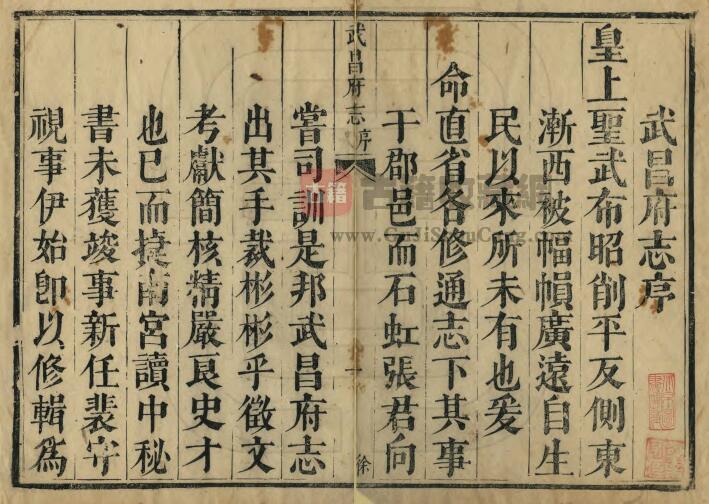 武昌府志序
皇上聖武布昭削平反側東
漸西被幅幀廣遠自生
民以來所未有也爰
命直省各修通志下其事
于郡邑而石虹張君向
武昌府志 序 一 徐
嘗司訓是邦武昌府志
出其手裁彬彬乎徵文
考獻簡核精嚴良史才
也已而捷南宮讀中秘
書未獲竣事新任裴守
視事伊始卽以修輯為
古籍
古籍收藏網
www.GuJiShuCang.com